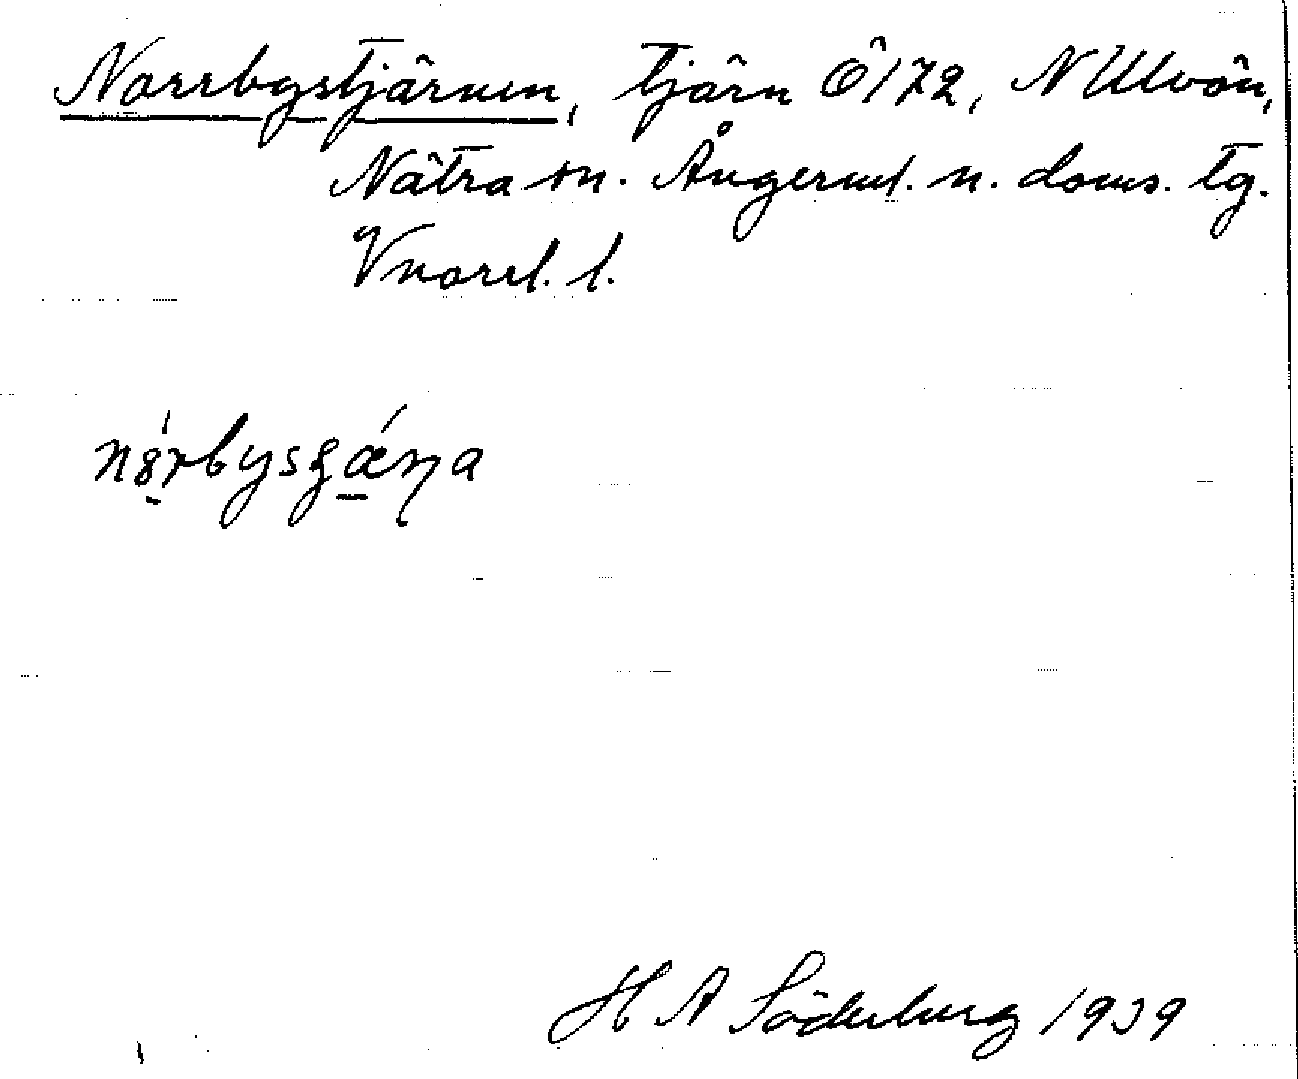 Norrbystjärnen, tjärn Ö172, N Ulvön,
Nätra sn. Ångerml. n. doms. tg.
Vnorrl. l.
H A Söderberg 1939